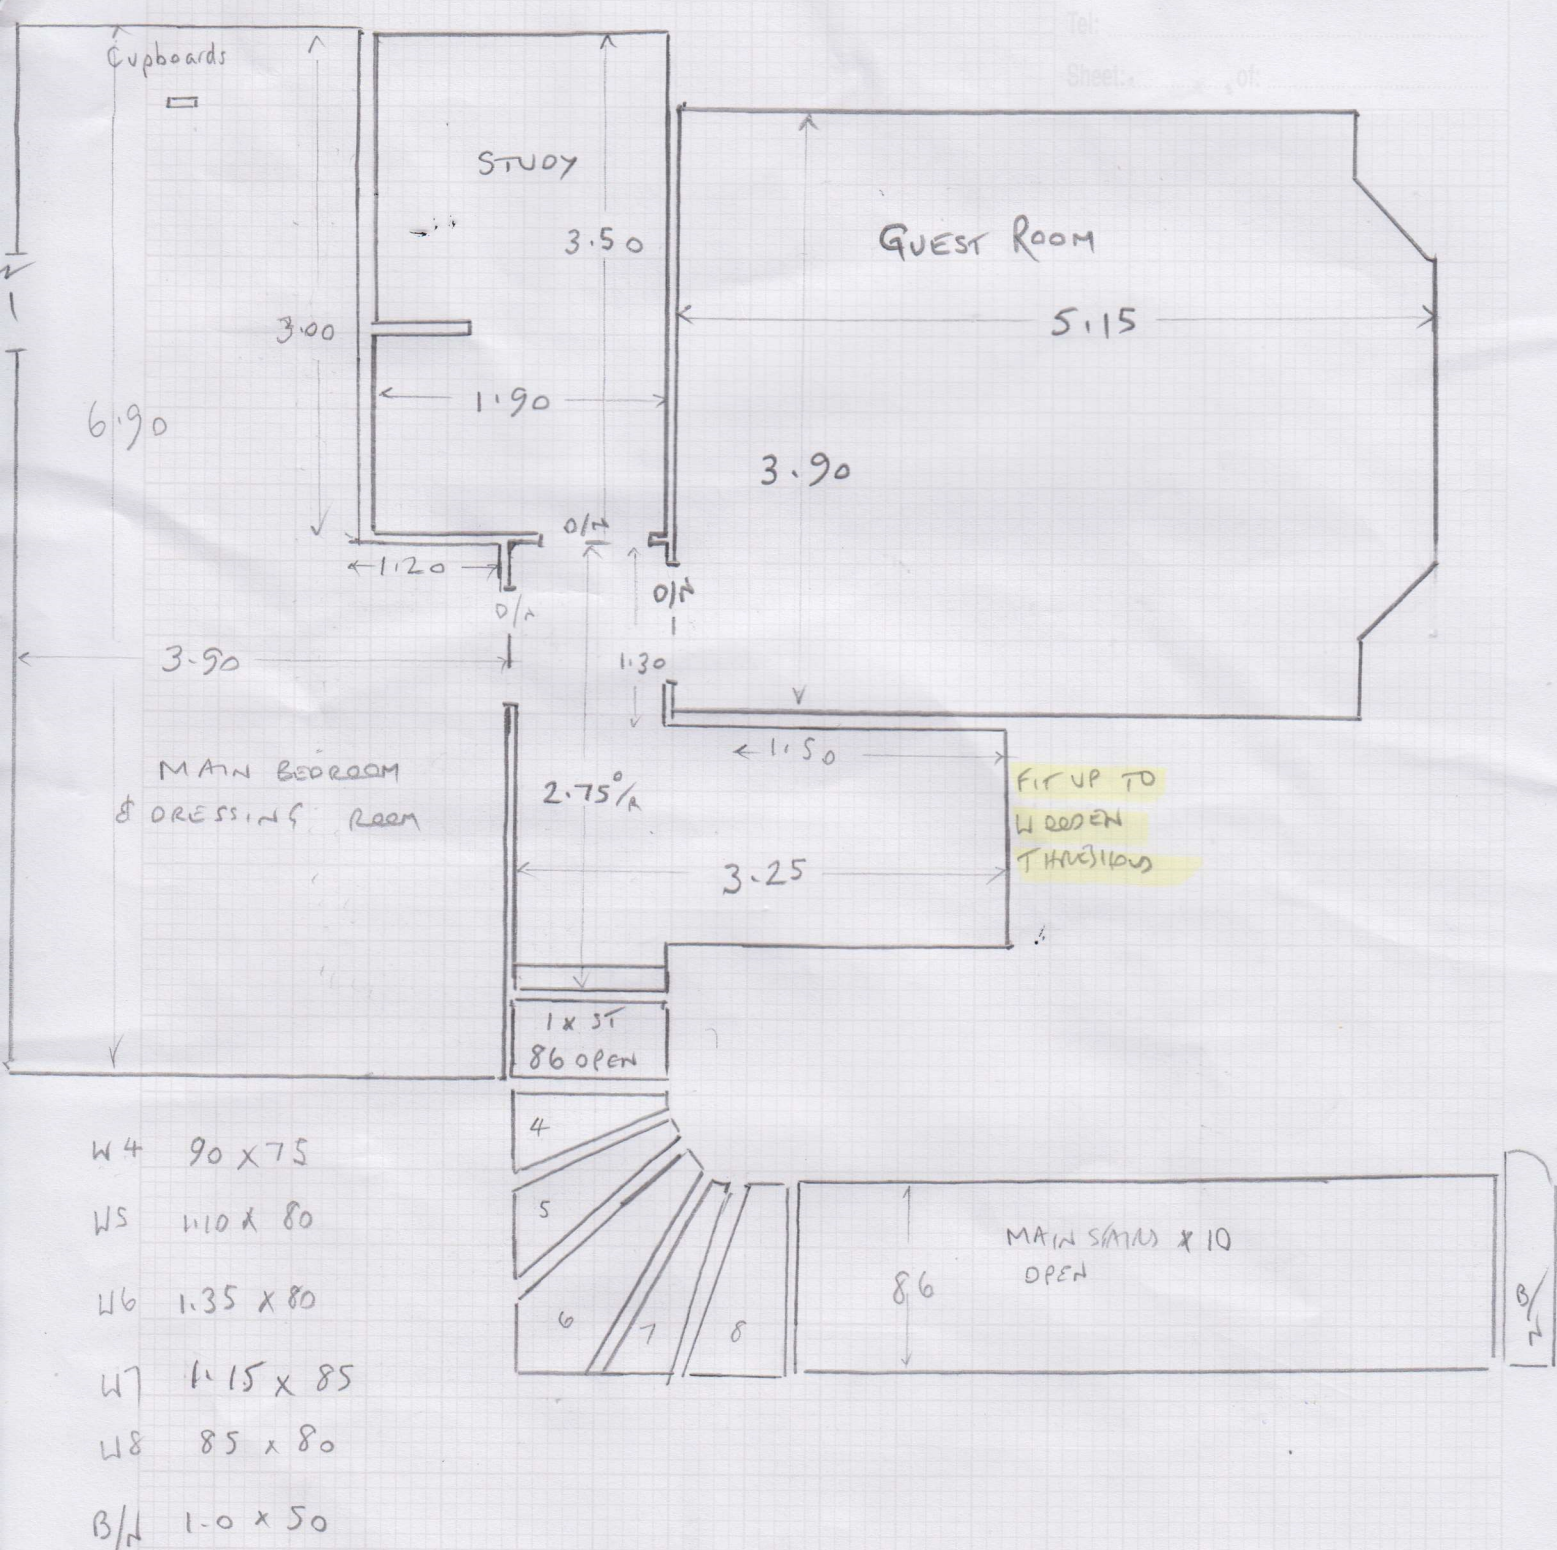 Tel:
Sheet: of:
Cupboards
STUDY
3.50
GUEST ROOM
5.15
3.00
1.90
6.90
3.90
1.20
1.30
3.90
1.50
MAIN BEDROOM
& DRESSING ROOM
2.75
FIT UP TO
WOODEN
THRESHOLD
3.25
1 x ST
86 OPEN
4
5
6
7
8
MAIN STAIRS x 10
OPEN
86
B/N
W4 90 x 75
W5 1.10 x 80
W6 1.35 x 80
W7 1.15 x 85
W8 85 x 80
B/N 1.0 x 50